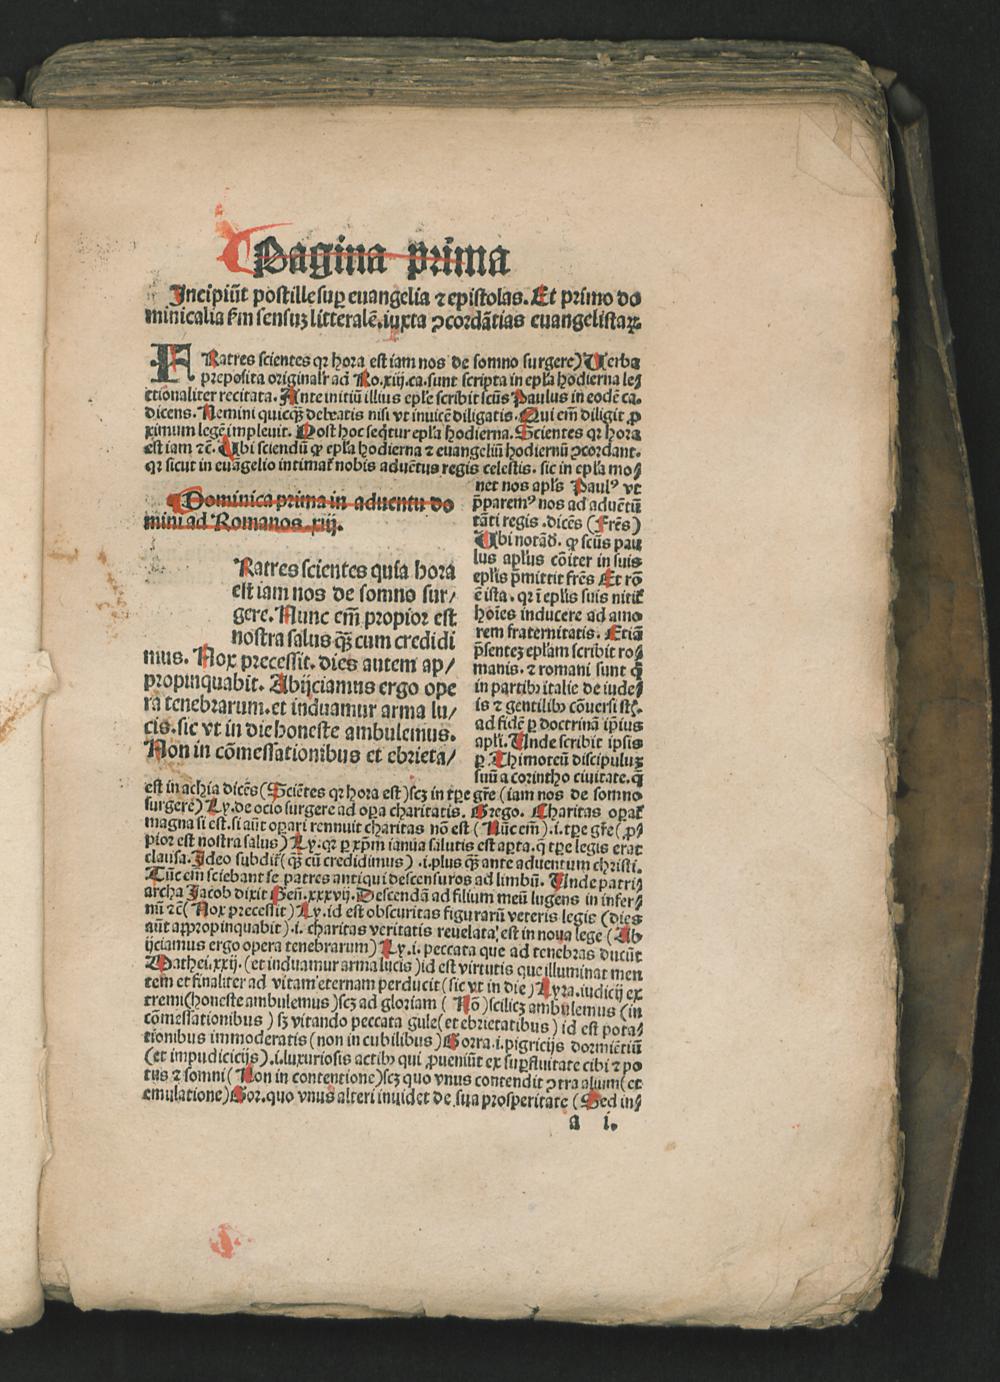 Pagina prima
Incipiūt postille sup euangelia ⁊ epistolas. Et primo do
minicalia ẜm sensuꝫ litteralē. iuxta ↄcordātias euangelistaꝝ.
FRatres scientes qꝛ hora est iam nos de somno surgere) Uerba
preposita originalr̄ ad Ro. xiij. ca. sunt scripta in epl̄a hodierna le⸗
ctionaliter recitata. Ante initiū illius epl̄e scribit scūs Paulus in eodē ca.
dicens. Nemini quicqȝ̄ debeatis nisi vt inuicē diligatis. Qui em̄ diligit ꝓ
ximum legē impleuit. Post hoc seq̄tur epl̄a hodierna. Scientes qꝛ hora
est iam ⁊c̄. Ubi sciendū ꝙ epl̄a hodierna ⁊ euangeliū hodiernū ↄcordant.
qꝛ sicut in euāgelio intimat̄ nobis aduētus regis celestis. sic in epl̄a mo⸗
net nos apl̄s Paul⁹ vt
p̄parem⁹ nos ad aduētū
tāti regis. dicēs (Frēs)
Ubi notād̄. ꝙ scūs pau
lus apl̄us cōiter in suis
epl̄is p̄mittit frēs Et rō
ē ista. qꝛ ī epl̄is suis nitit̄
hoīes inducere ad amo
rem fraternitatis. Etiā
p̄sentēꝫ epl̄am scribit ro⸗
manis. ⁊ romani sunt q̄
in partibꝫ italie de iude⸗
is ⁊ gentilibꝫ cōuersi
ad fidē ꝑ doctrinā ip̄ius
apl̄i. Unde scribit ipsis
ꝑ Thimoteū discipuluꝫ
suū a corintho ciuitate. q̄
Dominica prima in aduentu do
mini ad Romanos. xiij.
Ratres scientes quia hora
est iam nos de somno sur/
gere. Nunc em̄ propior est
nostra salus qȝ̄ cum credidi
mus. Nox precessit. dies autem ap/
propinquabit. Abijciamus ergo ope
ra tenebrarum. et induamur arma lu/
cis. sic vt in die honeste ambulemus.
Non in cōmessationibus et ebrieta/
est in achia dicēs (Sciētes qꝛ hora est) scꝫ in tp̄e gr̄e (iam nos de somno
surgere) Ly. de ocio surgere ad opa charitatis. Grego. Charitas opat̄
magna si est. si aūt opari rennuit charitas nō est (Nūc em̄) .i. tp̄e gr̄e (ꝓ⸗
pior est nostra salus) Ly. qꝛ ꝑ xp̄m ianua salutis est apta. q̄ tp̄e legis erat
clausa. Ideo subdit̄ (qȝ̄ cū credidimus) .i. plus qȝ̄ ante aduentum christi.
Tūc em̄ sciebant se patres antiqui descensuros ad limbū. Unde patri⸗
archa Jacob dixit Gen̄. xxxvij. Descendā ad filium meū lugens in infer⸗
nū ⁊c̄ (Nox precessit) Ly. id est obscuritas figurarū veteris legis (dies
aūt appropinquabit) .i. charitas veritatis reuelata est in noua lege (Ab
ijciamus ergo opera tenebrarum) Ly. i. peccata que ad tenebras ducūt
Mathei. xxij. (et induamur arma lucis) id est virtutis que illuminat men
tem et finaliter ad vitam eternam perducit (sic vt in die) Lyra. iudicij ex
tremi (honeste ambulemus) scꝫ ad gloriam (Nō) scilicꝫ ambulemus (in
cōmessationibus) sꝫ vitando peccata gule (et ebrietatibus) id est pota⸗
tionibus immoderatis (non in cubilibus) Gorra. i. pigricijs dormiētiū
(et impudicicijs) .i. luxuriosis actibꝫ qui ꝓueniūt ex supfluitate cibi ⁊ po
tus ⁊ somni (Non in contentione) scꝫ quo vnus contendit ↄtra alium (et
emulatione) Gor. quo vnus alteri inuidet de sua prosperitate (Sed in⸗
a i.